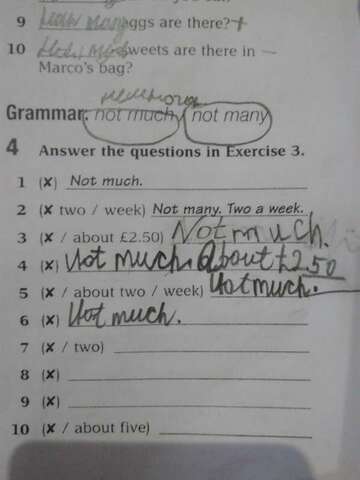 9 How many eggs are there? +
10 How many sweets are there in –
Marco's bag?
Grammar: not much / not many
4 Answer the questions in Exercise 3.
1 (✗) Not much.
2 (✗ two / week) Not many. Two a week.
3 (✗ / about £2.50) Not much.
4 (✗) Not much. About £2.50
5 (✗ / about two / week) Not much.
6 (✗) Not much.
7 (✗ / two)
8 (✗)
9 (✗)
10 (✗ / about five)